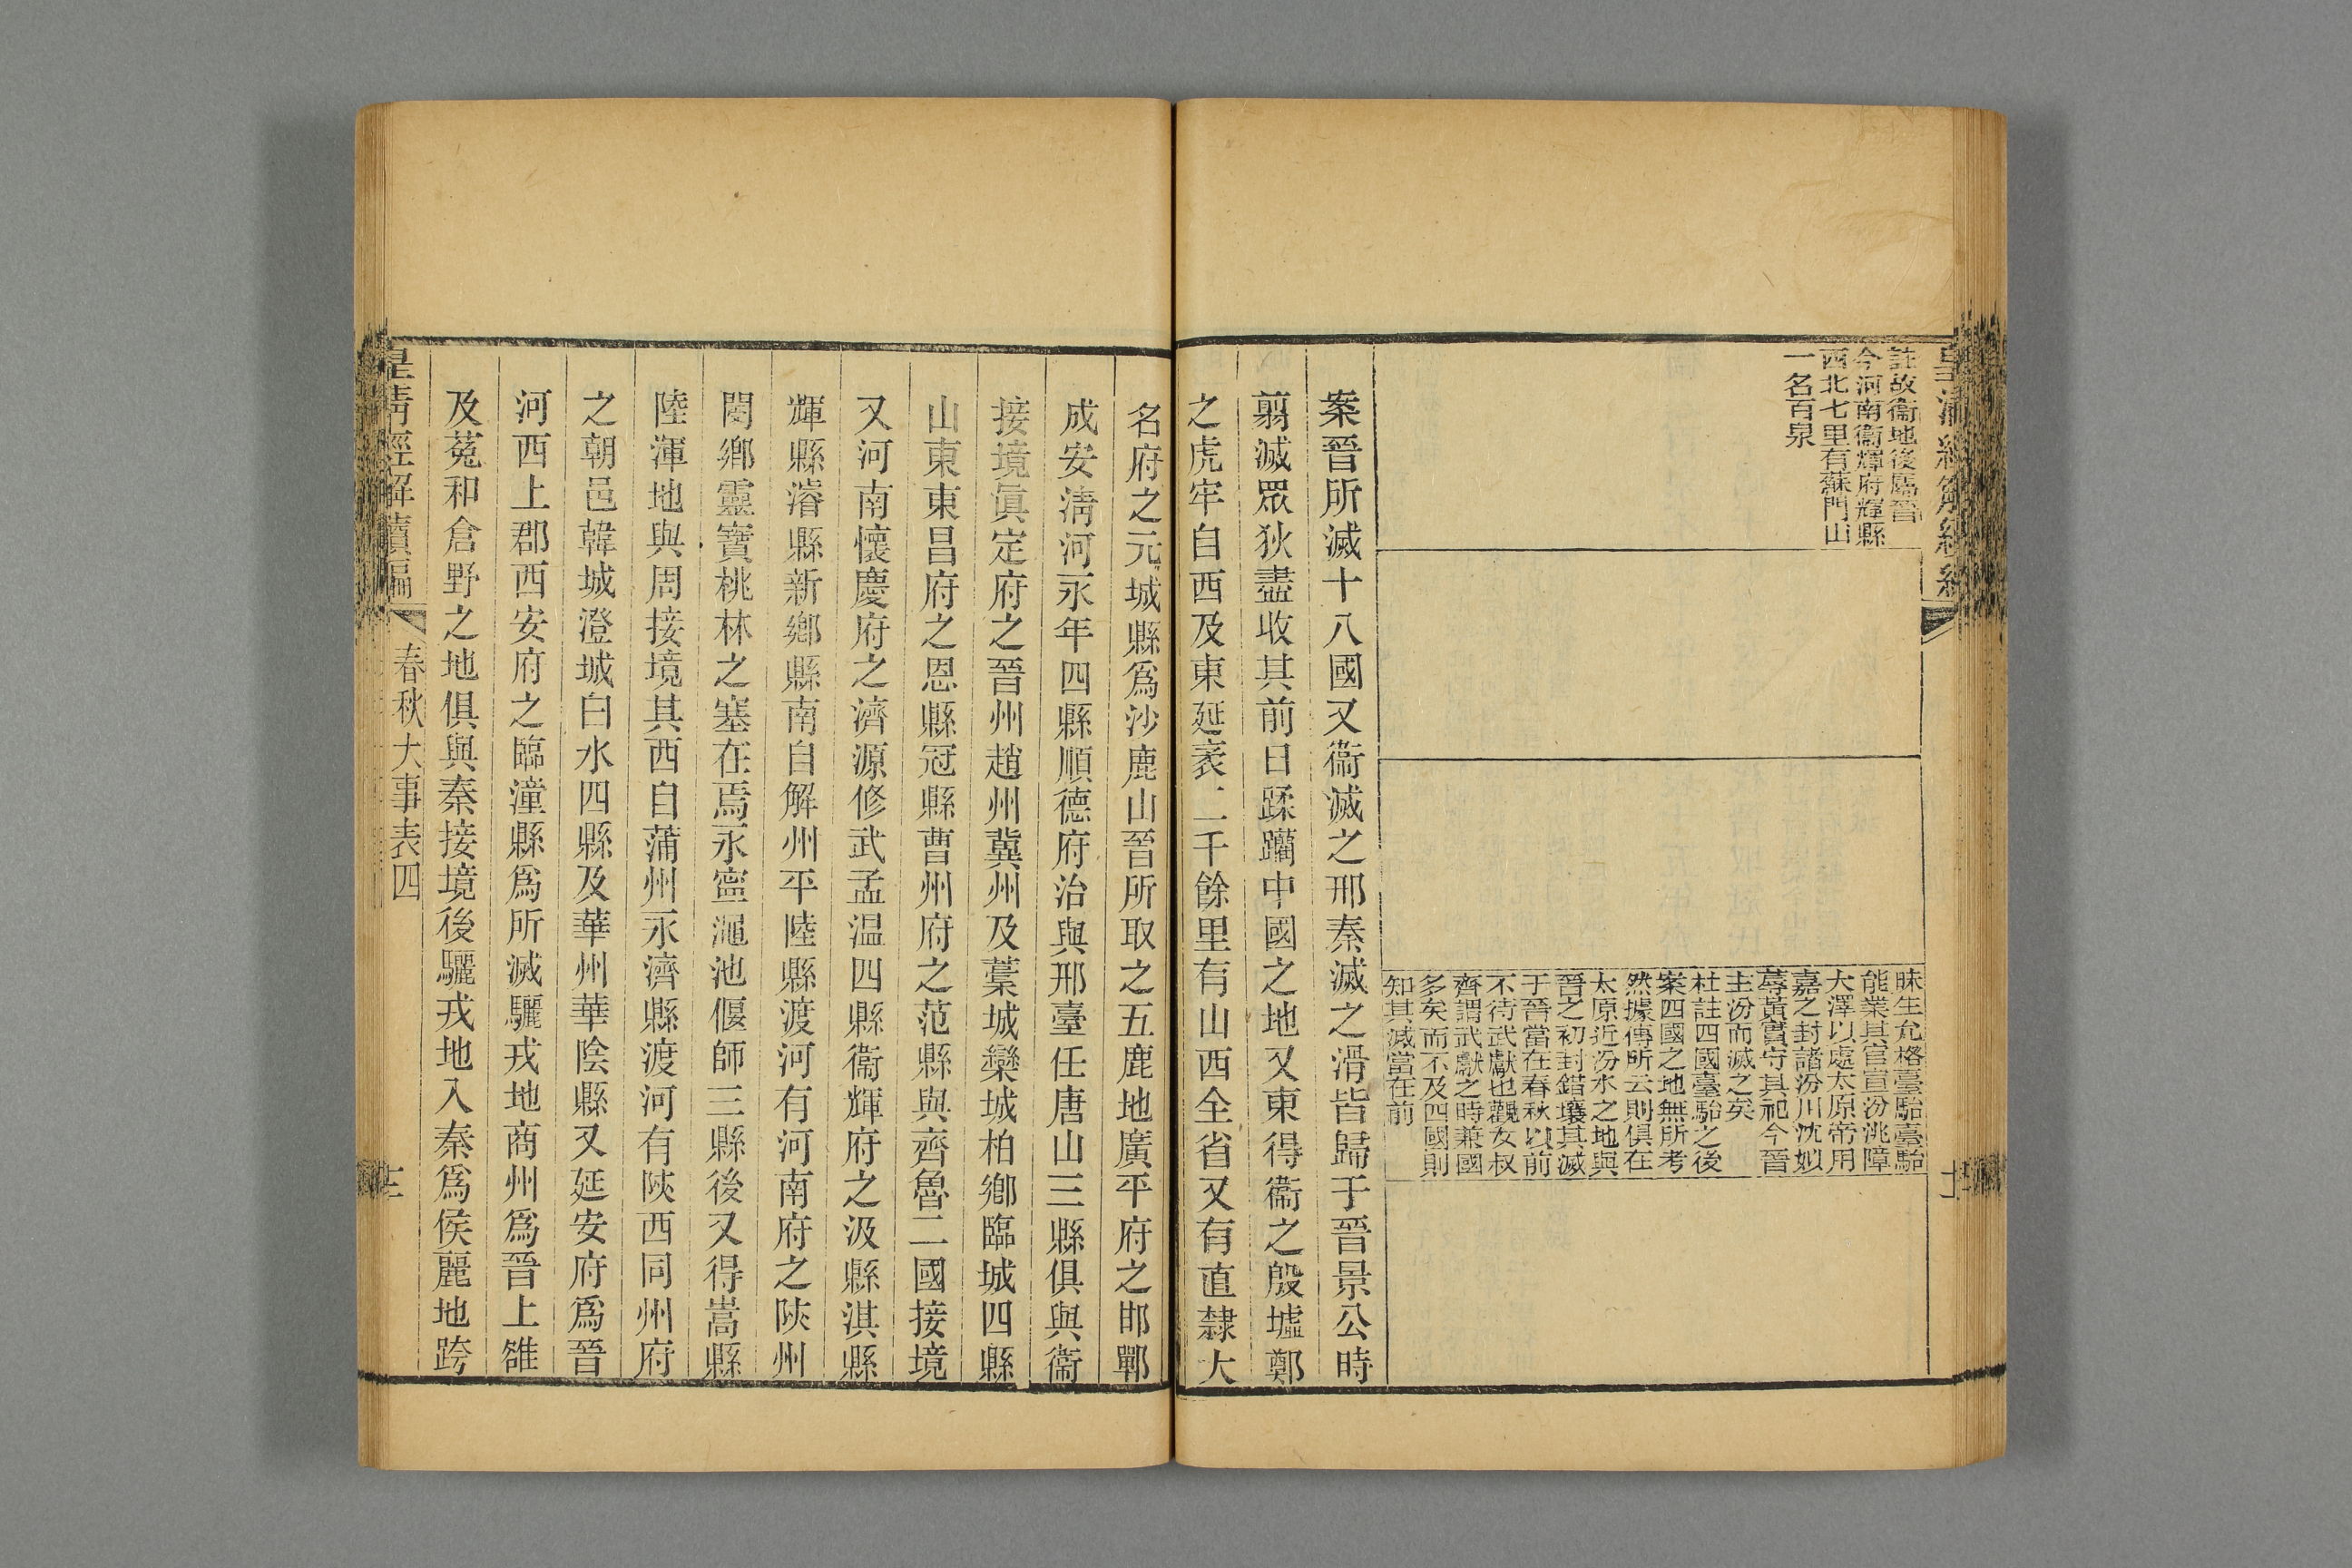 註故衞地後屬晉
今河南衞輝府輝縣
西北七里有蘇門山
一名百泉
昧生允格臺駘臺駘
能業其官宣汾洮障
大澤以處太原帝用
嘉之封諸汾川沈姒
蓐黃實守其祀今晉
主汾而滅之矣
杜註四國臺駘之後
案四國之地無所考
然據傳所云則俱在
太原近汾水之地與
晉之初封錯壤其滅
于晉當在春秋以前
不待武獻也觀女叔
齊謂武獻之時兼國
多矣而不及四國則
知其滅當在前
案晉所滅十八國又衞滅之邢秦滅之滑皆歸于晉景公時
翦滅眾狄盡收其前日蹂躪中國之地又東得衞之殷墟鄭
之虎牢自西及東延袤二千餘里有山西全省又有直隸大
名府之元城縣爲沙鹿山晉所取之五鹿地廣平府之邯鄲
成安淸河永年四縣順德府治與邢臺任唐山三縣俱與衞
接境眞定府之晉州趙州冀州及藁城欒城柏鄉臨城四縣
山東東昌府之恩縣冠縣曹州府之范縣與齊魯二國接境
又河南懷慶府之濟源修武孟温四縣衞輝府之汲縣淇縣
輝縣濬縣新鄉縣南自解州平陸縣渡河有河南府之陝州
閿鄉靈寶桃林之塞在焉永寧澠池偃師三縣後又得嵩縣
陸渾地與周接境其西自蒲州永濟縣渡河有陝西同州府
之朝邑韓城澄城白水四縣及華州華陰縣又延安府爲晉
河西上郡西安府之臨潼縣爲所滅驪戎地商州爲晉上雒
及菟和倉野之地俱與秦接境後驪戎地入秦爲侯麗地跨
皇清經解續編
春秋大事表四